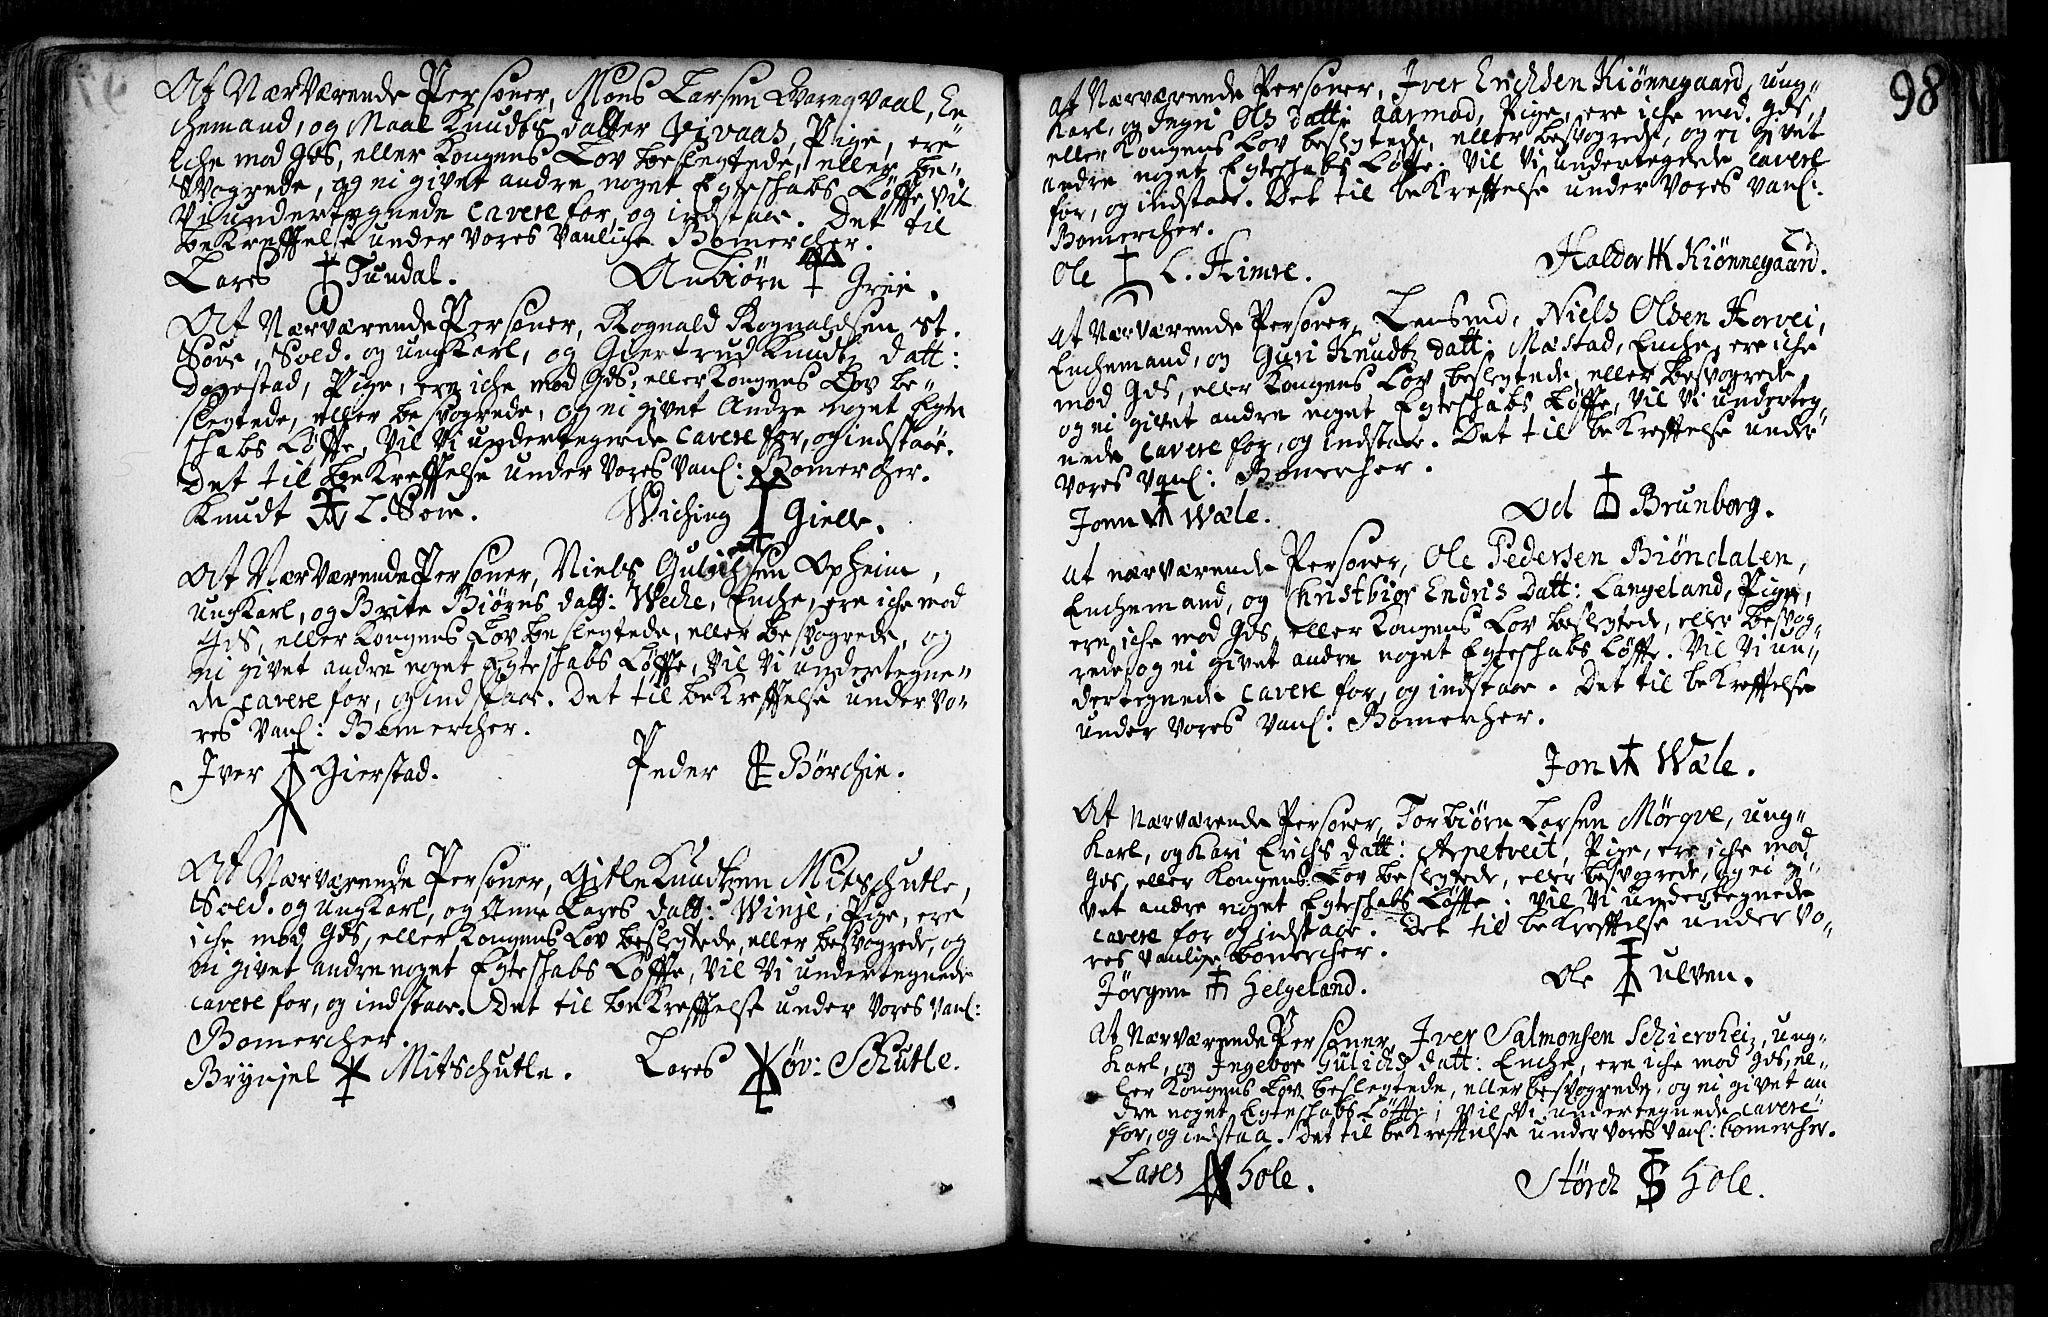 At Nærværende Personer, Mons Larsen Qvareqvaal, En
chemand, og Maal Knudts datter Vivaas, Pige, ere
iche mod Gds, eller Kongens Lov beslegtede, eller be-
svogrede, og ei givet andre noget Egteschabs Løffte, Vil
Vi undertegnede cavere for, og indstaae. Det til
beKreffelse under Vores Vanlige Bomercher.
Lares Tundal. Anbiørn Greie.
At Nærværende Personer, Rognald Rognaldsen st.
Søve, Sold. og ungKarl, og Giertrud Knudtz datt:
Dagestad, Pige, ere iche mod Gds, eller Kongens Lov be-
slegtede, eller besvogrede, og ei givet Andre noget Egte
schabs Løffte, Vil Vi undertegnede cavere for, og indstaae.
Det til beKreffelse under Vores Vanl: Bomercher.
Knudt L. Søve. Wiching Gielle.
At Nærværende Personer, Niels Gulichsen Opheim,
ungKarl, og Brite Biørns datt: Weche, Enche, ere iche mod
Gds, eller Kongens Lov beslegtede, eller besvogrede, og
ei givet andre noget Egteschabs Løffte, Vil Vi undertegne-
de cavere for, og indstaae. Det til beKreffelse under Vo-
res Vanl: Bomercher.
Iver Gierstad. Peder Børchie.
At Nærværende Personer, Gitle Knudtzen Mitschutle,
Sold. og ungKarl, og Anne Lares datt: Winje, Pige, ere
iche mod Gds, eller Kongens Lov beslegtede, eller besvogrede, og
ei givet andre noget Egteschabs Løffte, Vil Vi undertegnede
cavere for, og indstaae. Det til beKreffelse under Vores Vanl:
Bomercher.
Brynjel Mitschutle. Lares øv: Schutle.
98
At Nærværende Personer, Iver Erichsen Kiønnegaard, ung-
Karl, og Ols datt: Aarmod, Pige, ere iche mod Gds,
eller Kongens Lov beslegtede, eller besvogrede, og ei givet
andre noget Egteschabs Løffte. Vil Vi undertegnede cavere
for, og indstaae. Det til beKreffelse under Vores Vanl:
Bomercher.
Ole L. Himle. Haldor HK Kiønnegaard.
At Nærværende Personer, Lensmd, Niels Olsen Horvei,
Enchemand, og Guri Knudtz datt: Mæstad, Enche, ere iche
mod Gds, eller Kongens Lov beslegtede, eller besvogrede,
og ei givet andre noget Egteschabs Løffte, Vil Vi underteg-
nede cavere for, og indstaae. Det til beKreffelse under
Vores Vanl: Bomercher.
Jonn Wæle. Od Brunborg.
At nærværende Personer, Ole Pedersen Biøndalen,
Enchemand, og Christbiør Endris Datt: Langeland, Pige,
ere iche mod Gds, eller Kongens Lov beslegtede, eller besvog-
rede, og ei givet andre noget Egteschabs Løffte. Vil Vi un-
dertegnede cavere for, og indstaae. Det til beKreffelse
under Vores Vanl: Bomercher.
Jon Wæle.
At Nærværende Personer, Torbiørn Larsen Mørqve, ung-
Karl, og Kari Erichs datt: Arpetveit, Pige, ere iche mod
Gds, eller Kongens Lov beslegtede, eller besvogrede, og ei gi-
vet andre noget Egteschabs Løffte. Vil Vi undertegnede
cavere for og indstaae. Det til beKreffelse under Vo-
res Vanlige bomercher.
Jørgen Helgeland. Ole Ulven.
At Nærværende Personer, Iver Salmonsen Schierveheiz, ung-
Karl, og Ingebor Gulichs datt: Enche, ere iche mod Gds, el-
ler Kongens Lov beslegtede, eller besvogrede, og ei givet an
dre noget Egteschabs Løffte, Vil Vi undertegnede cavere
for, og indstaa. Det til beKreffelse under Vores Vanl: bomercher.
Lares Hole. Størch Hole.